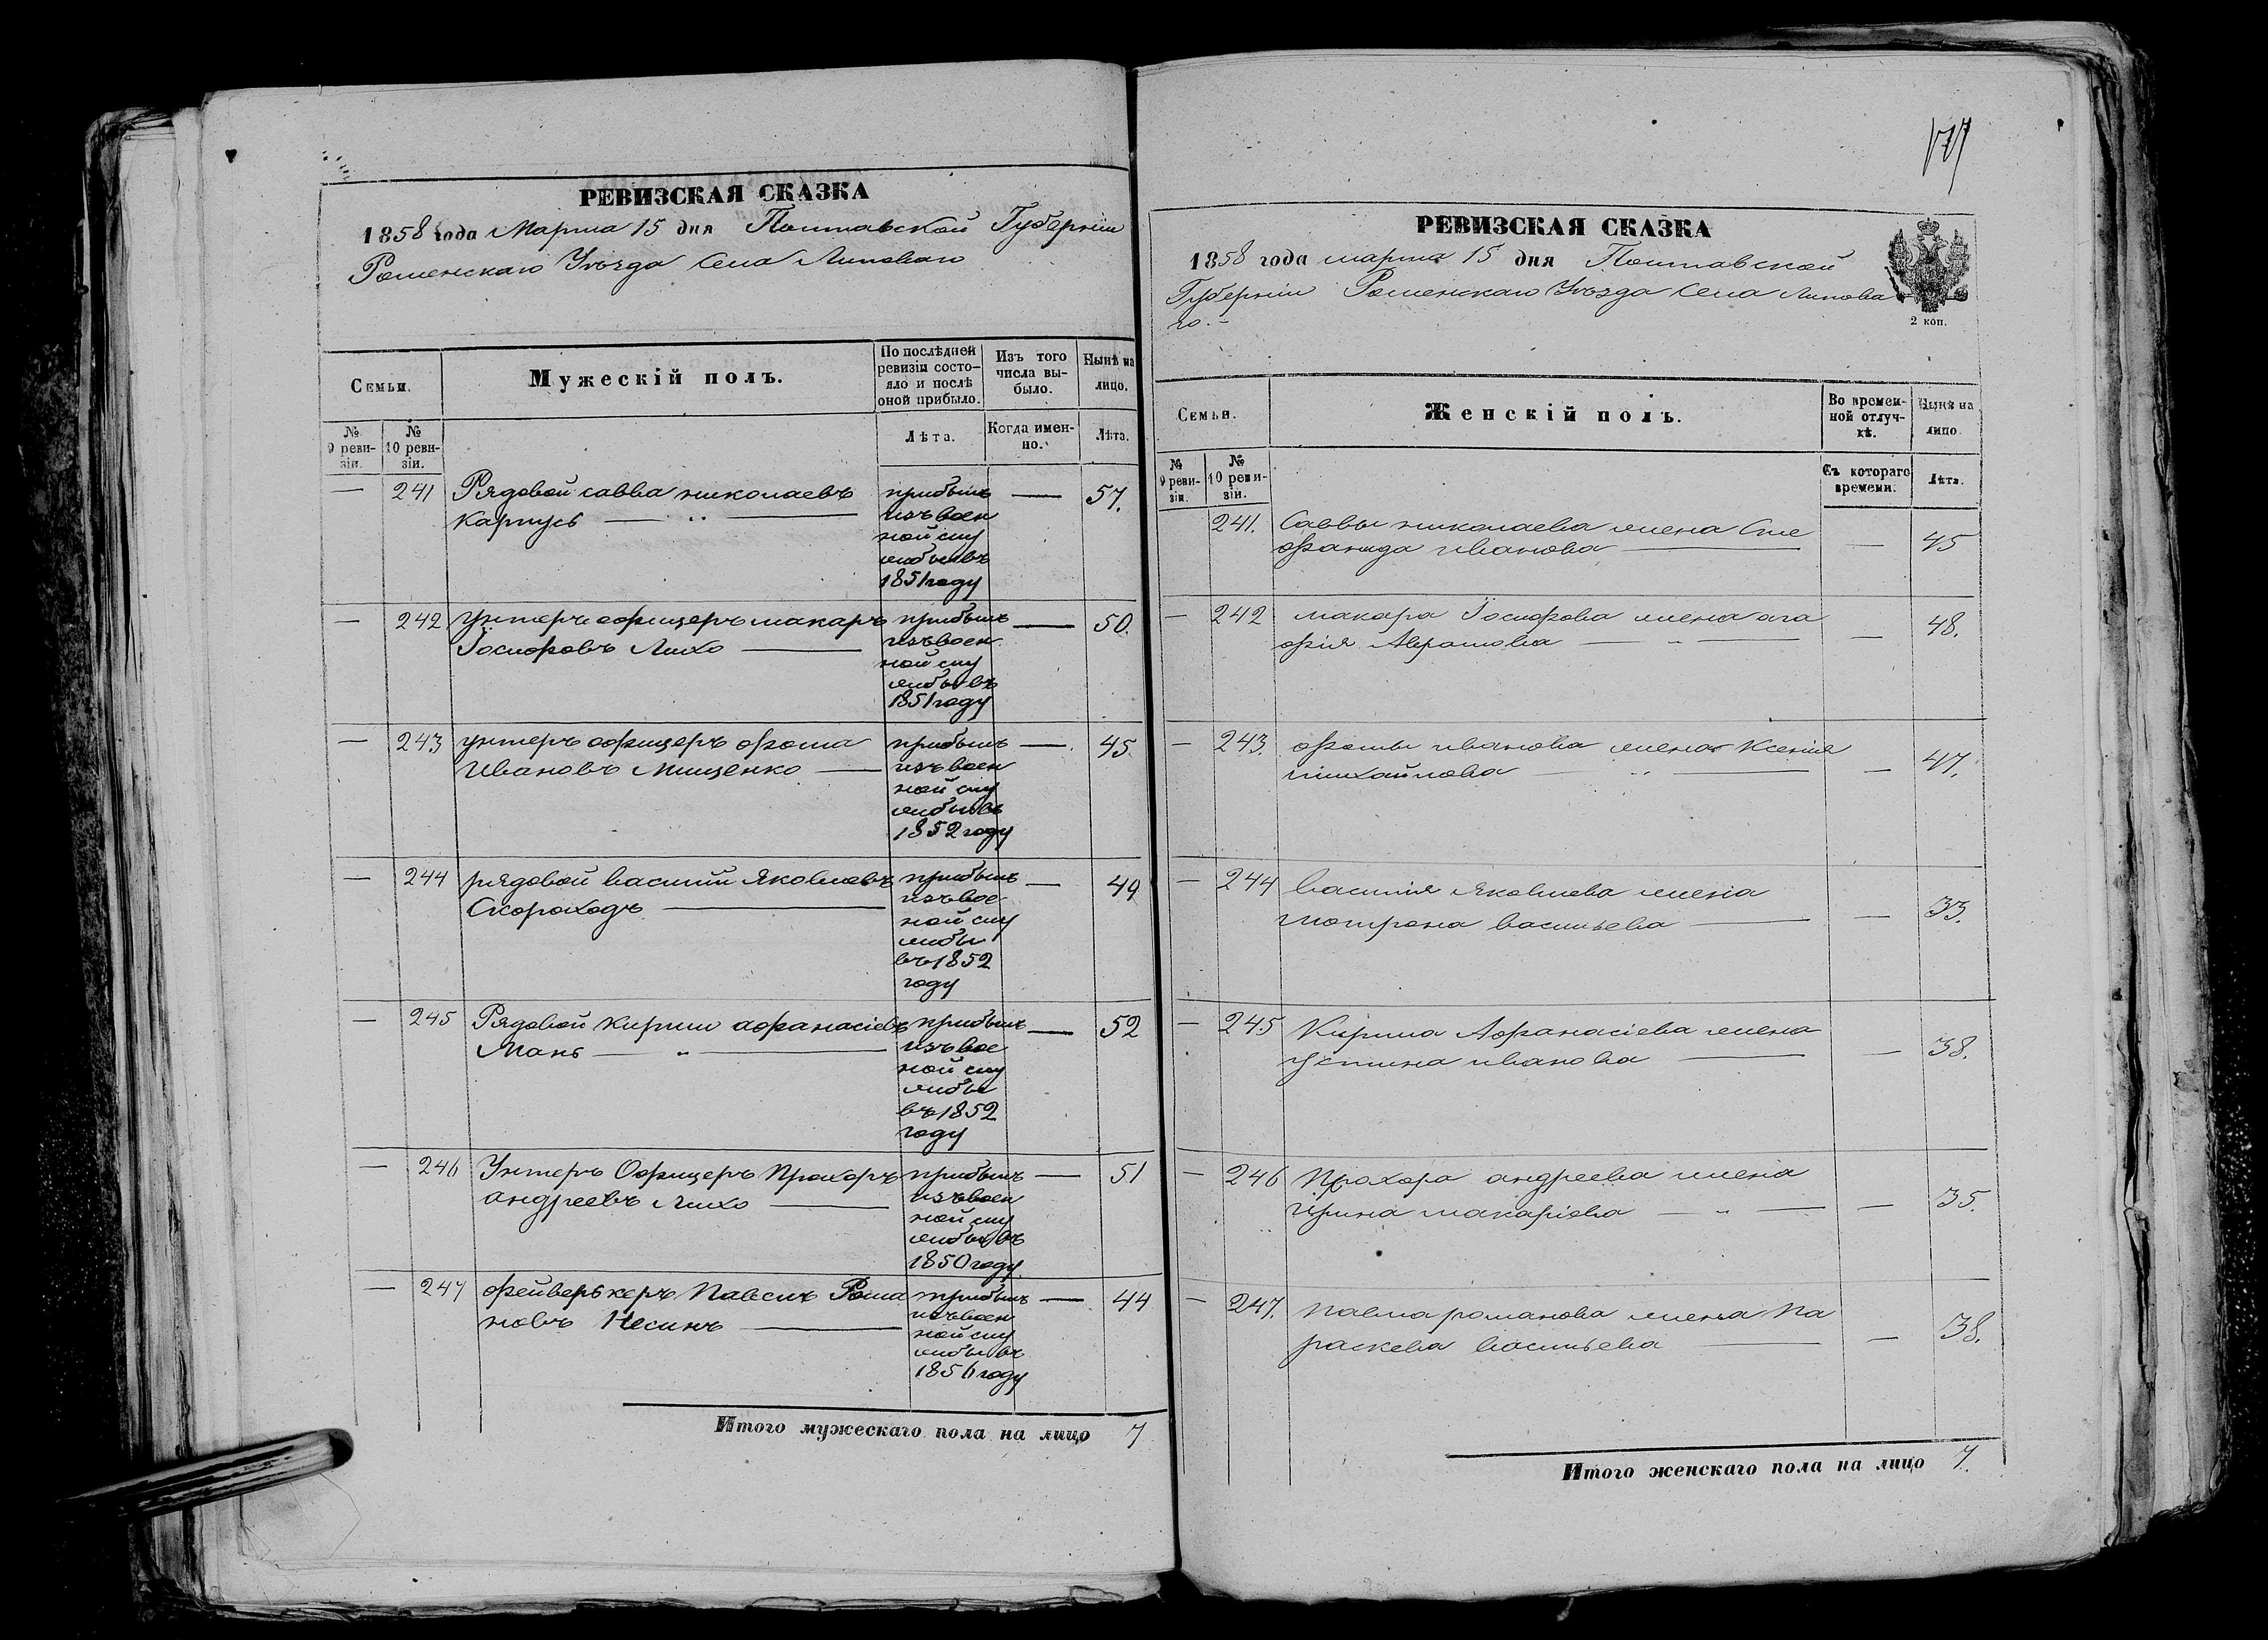 РЕВИЗСКАЯ СКАЗКА
1858 года Марта 15 дня Полтавской Губерніи
Роменскаго Уѣзда Села Липоваго
Семьи.
Мужескій полъ.
По послѣдней ревизіи состо-
яло и послѣ
оной прибыло.
Изъ того
числа вы-
было.
Нынѣ на
лицо.
№
9 реви-
зіи.
№
10 реви-
зіи.
Лѣта.
Когда имен-
но.
Лѣта.
— 241 Рядовой савва николаевъ
Карпусь — „ —
прибылъ
изъ воен
ной слу
жбы въ
1851 году
— 57.
— 242 унтеръ офицеръ макаръ
Іосифовъ Лихо —
прибылъ
изъ воен
ной слу
жбы въ
1851 году
— 50.
— 243 унтеръ офицеръ фома
Ивановъ Мищенко —
прибылъ
изъ воен
ной слу
жбы въ
1852 году
— 45.
— 244 рядовой василий Яковлевъ
Скороходъ —
прибылъ
изъ вое
ной слу
жбы
въ 1852
году
— 49
— 245 Рядовой Кирилл афанасіевъ
Мань — „ —
прибылъ
изъ вое
ной слу
жбы
въ 1852
году
— 52
— 246 Унтеръ Офицеръ Прохоръ
андреевъ Лихо —
прибылъ
изъ воен
ной слу
жбы въ
1850 году
— 51
— 247 фейверькеръ Павелъ Рома
новъ Несинъ —
прибылъ
изъ воен
ной слу
жбы въ
1856 году
— 44
Итого мужескаго пола на лицо 7
РЕВИЗСКАЯ СКАЗКА
1858 года марта 15 дня Полтавской
Губерніи Роменскаго Уѣзда Села Липова
го. –
2 коп.
Семьи.
Женскій полъ.
Во времен-
ной отлуч-
кѣ.
Нынѣ на
лицо
№
9 реви-
зіи.
№
10 реви-
зіи.
Съ котораго
времени.
Лѣта.
241. Саввы николаева жена Сте
фанида иванова — — 45
— 242 макара Іосифова жена ага
фія Аврамова — „ — — 48.
— 243. фомы иванова жена Ксенія
михайлова — „ — — 47.
— 244 василія Яковлева жена
мотрона васильева — — 33.
— 245 Кирила Афанасіева жена
устина иванова — — 38.
— 246 Прохора андреева жена
ирина макаріева — „ — — 35.
— 247. павла романова жена Па
раскева васильева — — 38.
Итого женскаго пола на лицо 7.